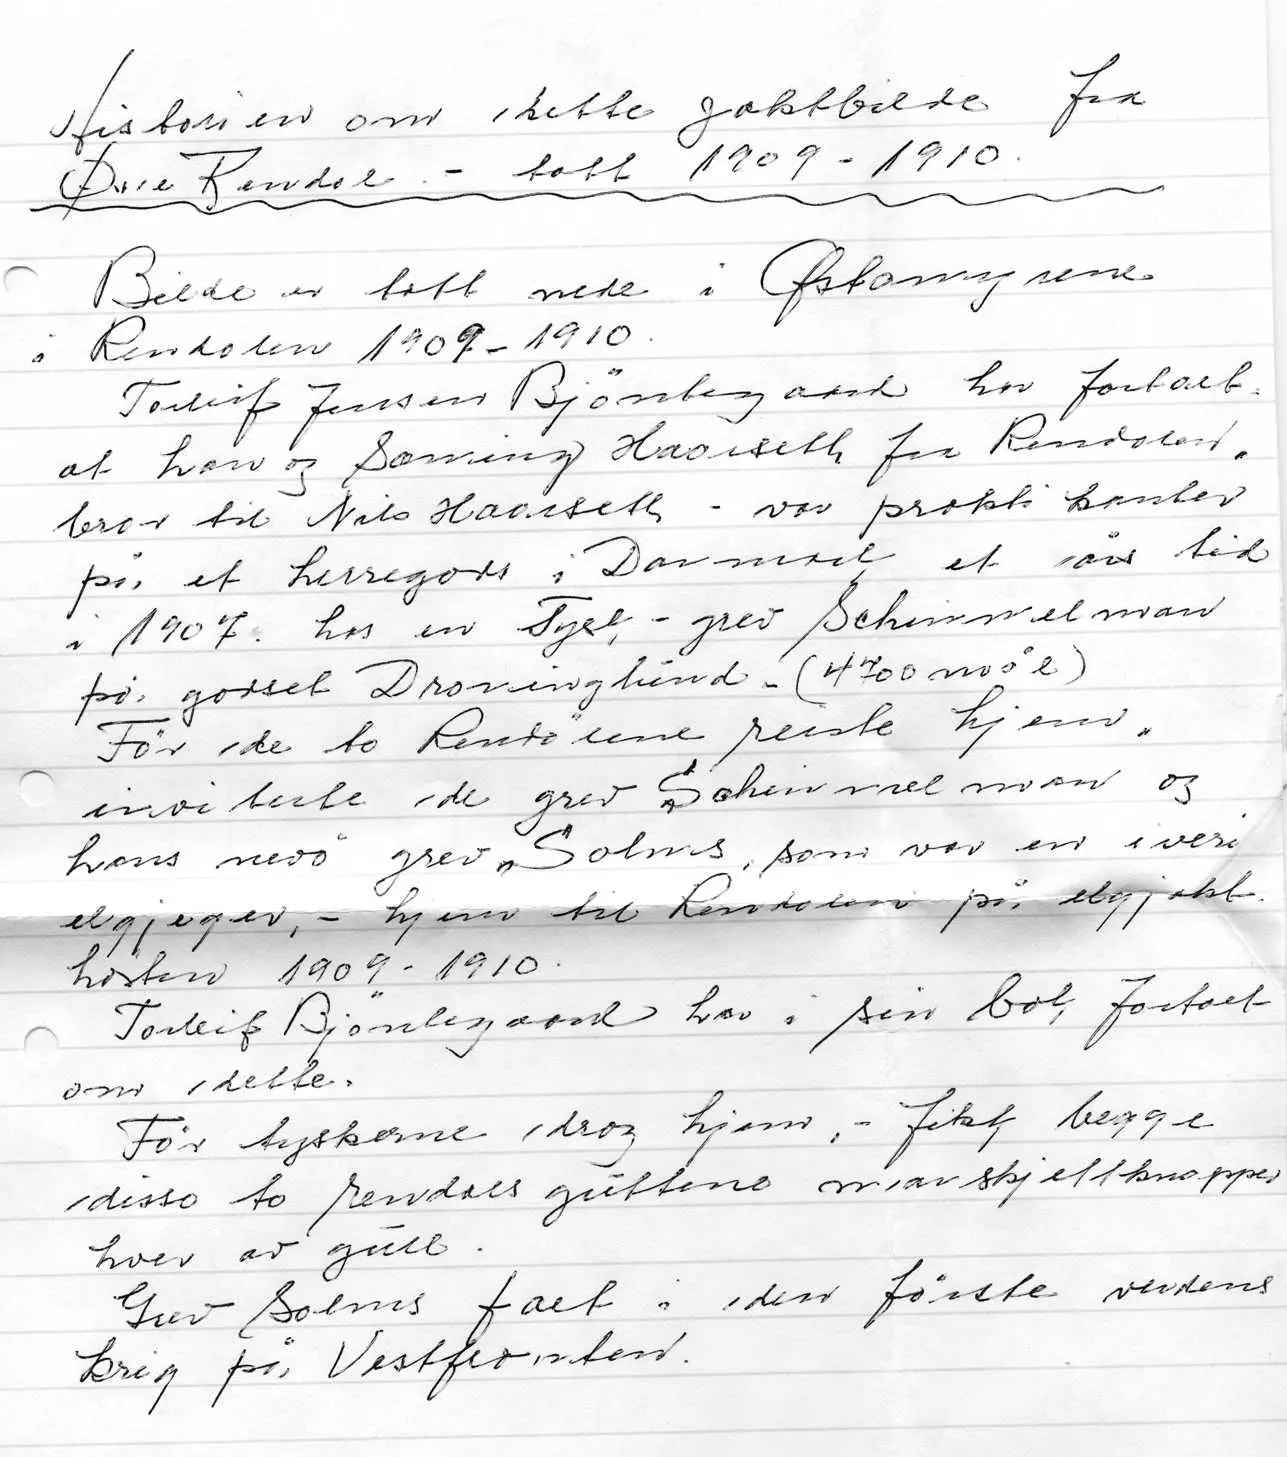 Historien om dette jaktbilde fra
Øvre Rendal. - tatt 1909 - 1910.
Bilde er tatt nede i Østamyrene
i Rendalen 1909 - 1910.
Torleif Jensen Bjöntegaard har fortalt.
at han og Sæming Haarseth fra Rendalen,
bror til Nils Haarseth - var praktikanter
på et herregods i Danmark et års tid
i 1907. hos en Tysk, - grev Schimmelman
på godset Droninglund - (4700 mål)
För de to Rendölene reiste hjem,
inviterte de grev Schimmelman og
hans nevö grev Solms, som var en iveri
elgjeger, - hjem til Rendalen på elgjakt.
høsten 1909 - 1910.
Torleif Bjöntegaard har i sin bok fortalt
om dette.
För tyskerne drog hjem, - fikk begge
disse to rendalsguttene manskjettknapper
hver av gull.
Grev Solms falt i den förste verdens
krig på Vestfronten.